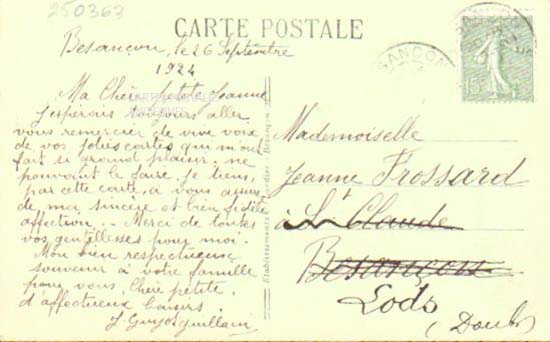 250363
CARTE POSTALE
Besançon, le 26 Septembre
1924
Ma Chère petite Jeanne
J'espérais toujours aller
vous remercier de vive voix
de vos jolies cartes qui m'ont
fait si grand plaisir; ne
pouvant le faire, je viens,
par cette carte, à vous assurer
de ma sincère et bien fidèle
affection. - Merci de toutes
vos gentillesses pour moi.
Mon bien respectueux
souvenir à votre famille
pour vous, Chère petite,
d'affectueux baisers.
BESANÇON
15c
Mademoiselle
Jeanne Frossard
à St Claude
Besançon
Lods
(Doubs)